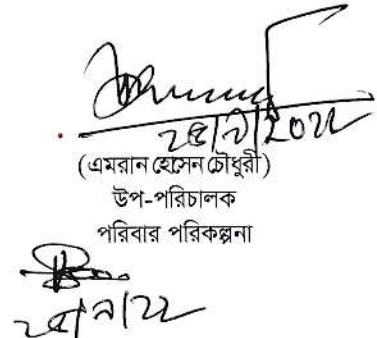 ২৫/৯/২০২২
(এমরান হোসেন চৌধুরী)
উপ-পরিচালক
পরিবার পরিকল্পনা
২৫/৯/২২